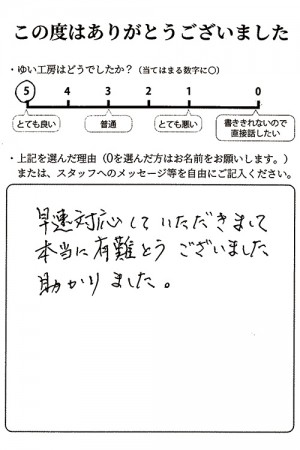 この度はありがとうございました
・ゆい工房はどうでしたか？（当てはまる数字に○）
5 4 3 2 1 0
とても良い 普通 とても悪い 書ききれないので直接話したい
・上記を選んだ理由（0を選んだ方はお名前をお願いします。）
または、スタッフへのメッセージ等を自由にご記入ください。
早速対応していただきまして
本当に有難とうございました
助かりました。